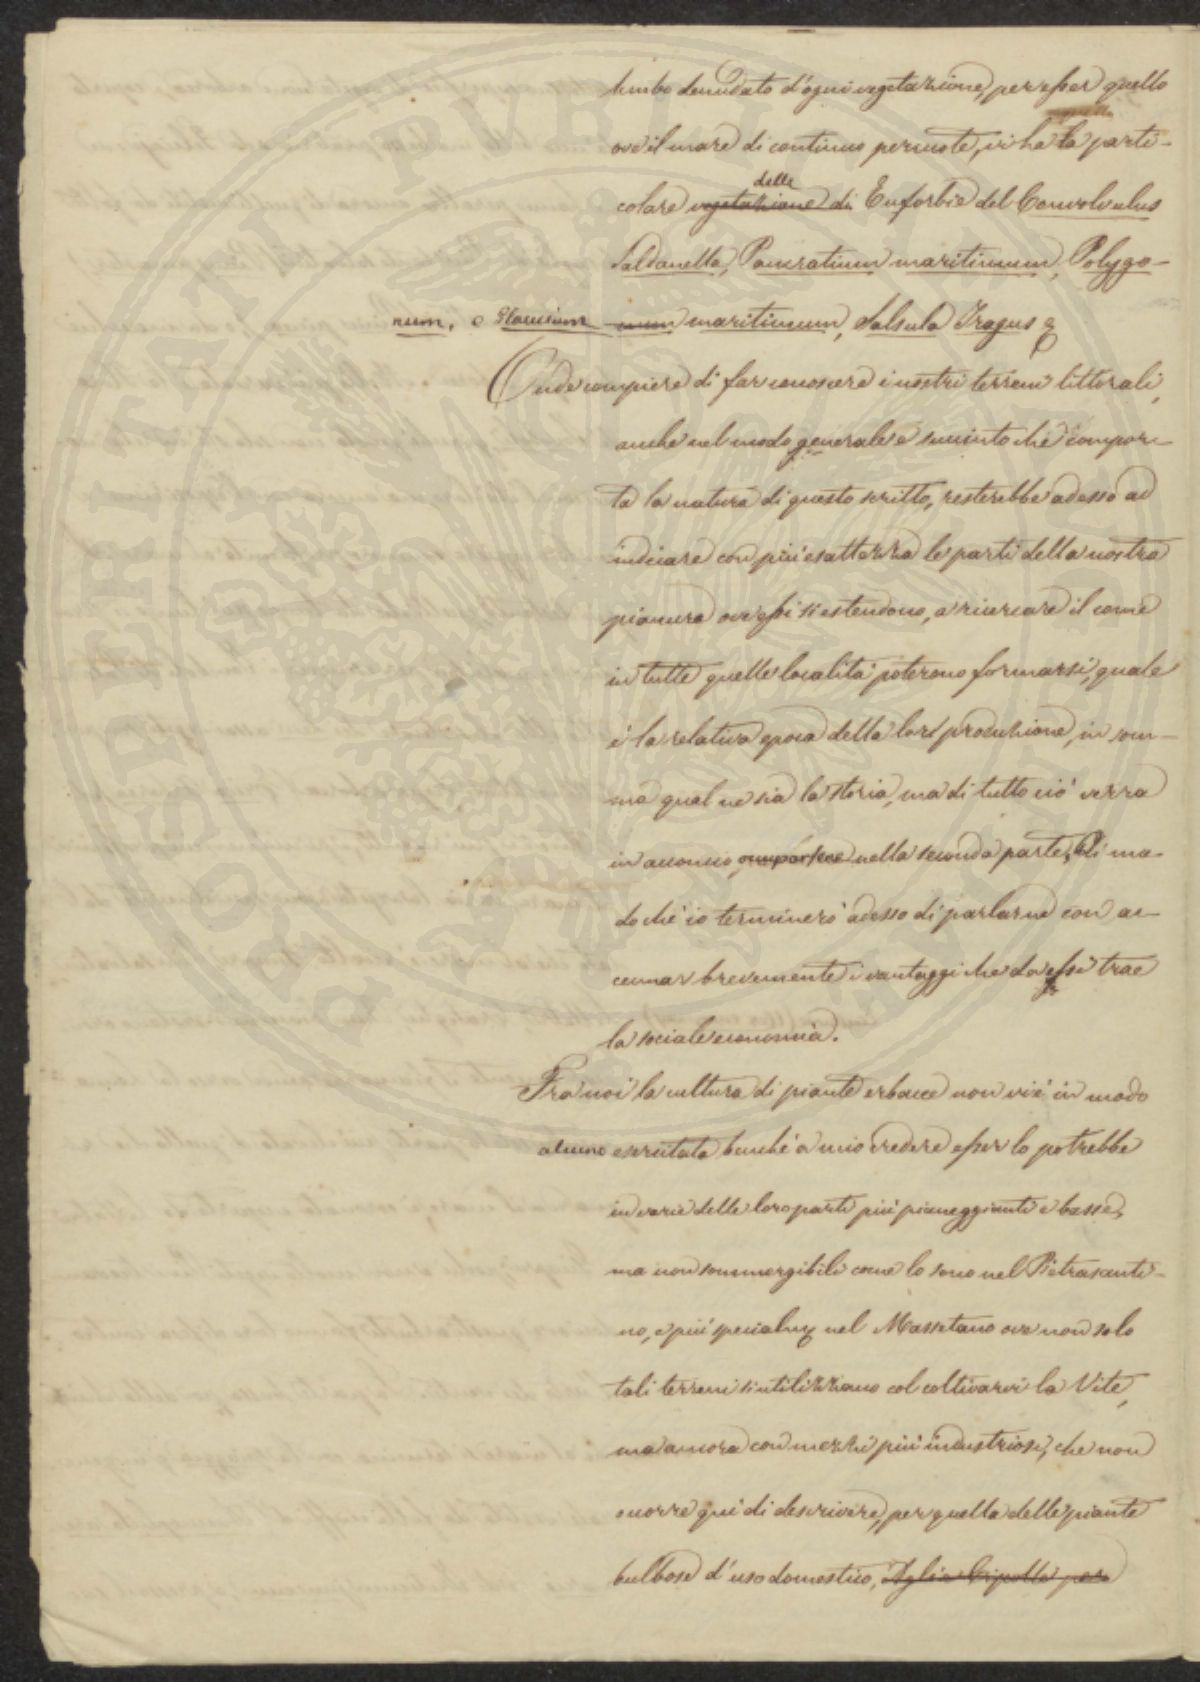 lembo denudato d'ogni vegetazione, per esser quello
ove il mare di continuo percuote, vi ha la parti-
delle
colare vegetazione di Euforbie del Convolvulus
Soldanella, Pancratium maritimum, Polygo-
num, e Glaucium num maritimum, Salsola Tragus &
Onde compiere di far conoscere i nostri terreni littorali,
anche nel modo generale e succinto che compor-
ta la natura di questo scritto, resterebbe adesso ad
indicare con più esattezza le parti della nostra
pianura ove essi si estendono, a ricercare il come
in tutte quelle località poterono formarsi, quale
è la relativa epoca della lor produzione, in som-
ma qual ne sia la storia, ma di tutto ciò verrà
in acconcio nella seconda parte, Di mo-
do che io terminerò adesso di parlarne con ac-
cennar brevemente i vantaggi che da essi trae
la sociale economia.
Fra noi la cultura di piante erbacee non vi è in modo
alcuno esercitata benché a mio credere esser lo potrebbe
in varie delle loro parti più pianeggianti e basse,
ma non sommergibili come lo sono nel Pietrasanti-
no, e più specialm nel Massetano ove non solo
tali terreni si utilizzano col coltivarvi la Vite,
ma ancora con mezzi più industriosi, che non
occorre qui di descrivere, per quella delle piante
bulbose d'uso domestico, Aglio Cipolle per